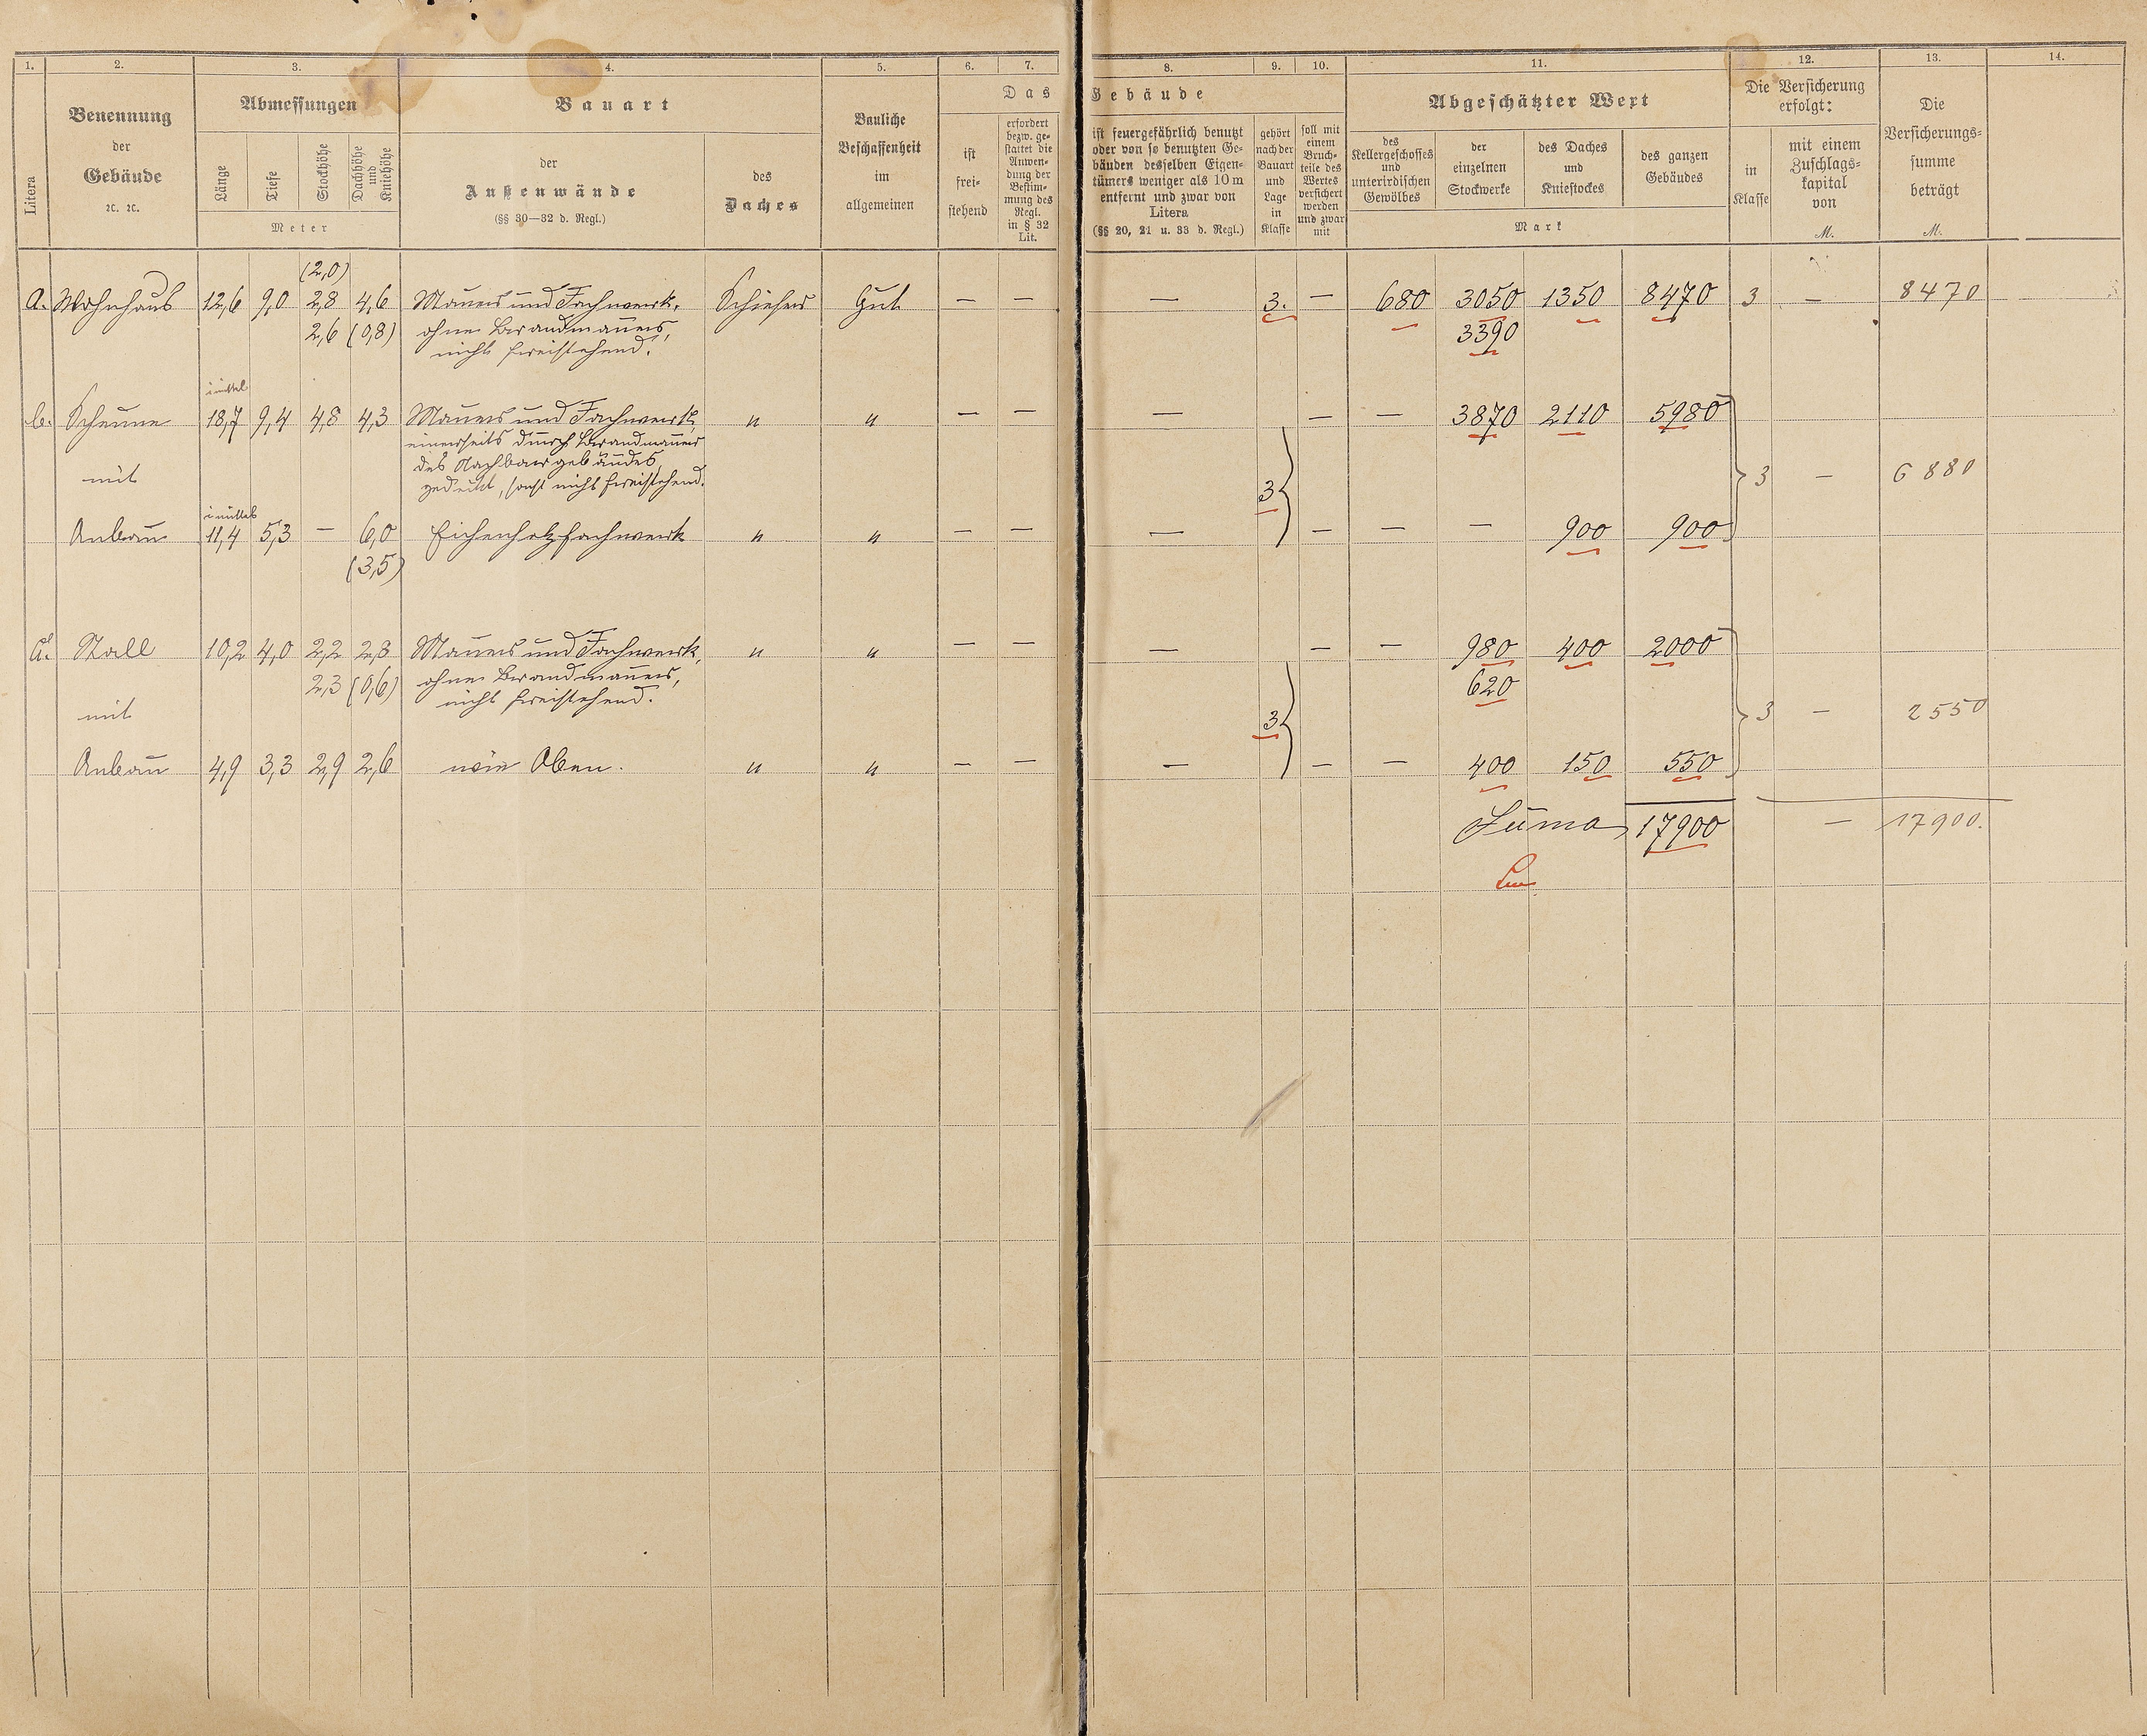 1. 2. 3. 4. 5. 6. 7. 8. 9. 10. 11. 12. 13. 14.
Litera
Benennung
der
Gebäude
ꝛc. ꝛc.
Abmessungen
Länge
Tiefe
Stockhöhe
Dachhöhe
und
Kniehöhe
Meter
Bauart
der
Außenwände
(§§ 30—32 d. Regl.)
des
Daches
Bauliche
Beschaffenheit
im
allgemeinen
Das
Gebäude
ist
frei-
stehend
erfordert
bezw. ge-
stattet die
Anwen-
dung der
Bestim-
mung des
Regl.
in § 32
Lit.
ist feuergefährlich benutzt
oder von so benutzten Ge-
bäuden desselben Eigen-
tümers weniger als 10 m
entfernt und zwar von
Litera
(§§ 20, 21 u. 33 d. Regl.)
gehört
nach der
Bauart
und
Lage
in
Klasse
soll mit
einem
Bruch-
teile des
Wertes
versichert
werden
und zwar
mit
Abgeschätzter Wert
des
Kellergeschosses
und
unterirdischen
Gewölbes
der
einzelnen
Stockwerke
des Daches
und
Kniestockes
des ganzen
Gebäudes
Mark
Die Versicherung
erfolgt:
in
Klasse
mit einem
Zuschlags-
kapital
von
M.
Die
Versicherungs-
summe
beträgt
M.
(2,0)
a. Wohnhaus 12,6 9,0 2,8 4,6 Mauer und Fachwerk, Schiefer Gut — — — 3. — 680 3050 1350 8470 3 — 8470
2,6 (0,8) ohne Brandmauer, 3390
nicht freistehend.
i mittel
b. Scheune 18,7 9,4 4,8 4,3 Mauer und Fachwerk, " " — — — — — 3870 2110 5980
einerseits durch Brandmauer
des Nachbargebäudes
mit gedeckt, sonst nicht freistehend. 3 3 — 6880
i mittel
Anbau 11,4 5,3 — 6,0 Eichenholzfachwerk " " — — — — — — 900 900
(3,5)
Stall 10,2 4,0 2,2 2,3 Mauer und Fachwerk, " " — — — — — 980 400 2000
2,3 (0,6) ohne Brandmauer, 620
nicht freistehend.
mit 3 3 — 2550
Anbau 4,9 3,3 2,9 2,6 wie Oben. " " — — — — — 400 150 550
Suma 17900 — 17900.